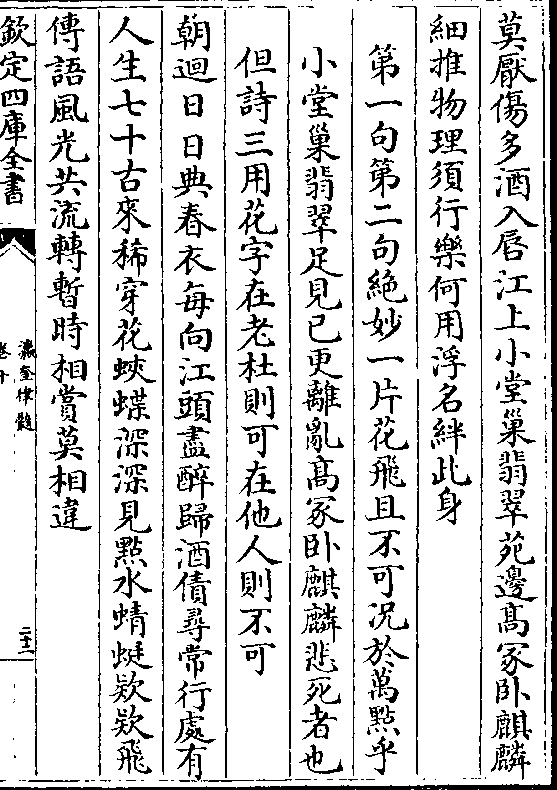 莫厭傷多酒入唇江上小堂巢翡翠苑邊髙冢卧麒麟
細推物理須行樂何用浮名絆此身
第一句第二句絶妙一片花飛且不可况於萬點乎
小堂巢翡翠足見已更離亂髙冢卧麒麟悲死者也
但詩三用花字在老杜則可在他人則不可
朝迴日日典春衣每向江頭盡醉歸酒債尋常行處有
人生七十古來稀穿花蛺蝶深深見點水蜻蜓欵欵飛
傳語風光共流轉暫時相賞莫相違
欽定四庫全書
瀛奎律髓
卷十
二十二